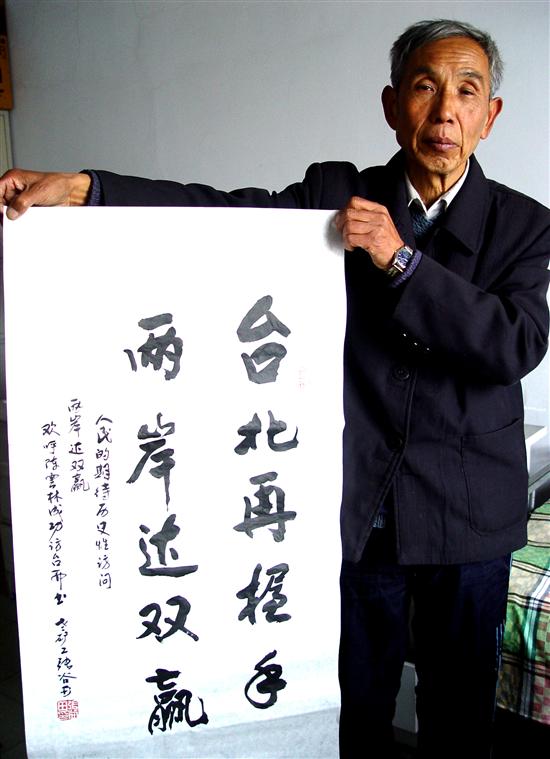 台北再握手
两岸达双赢
人民的期待历史性访问
两岸达双赢
欢呼陈雲林成功访台而书 老矿工